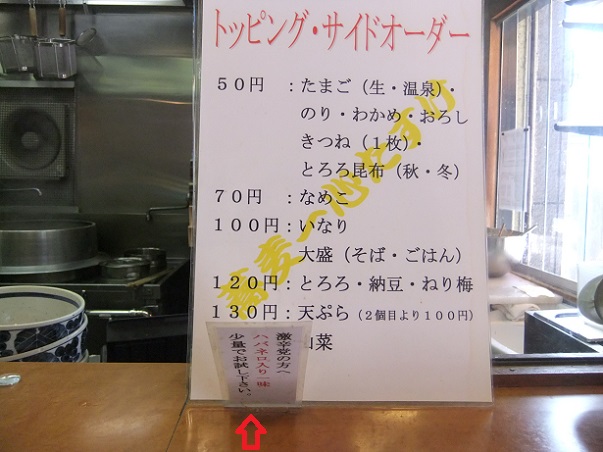 トッピング・サイドオーダー
50円 ：たまご（生・温泉）・
のり・わかめ・おろし
きつね（1枚）・
とろろ昆布（秋・冬）
70円 ：なめこ
100円：いなり
大盛（そば・ごはん）
120円：とろろ・納豆・ねり梅
130円：天ぷら（2個目より100円）
山菜
激辛党の方へ
ハバネロ入り一味
少量でお試し下さい。